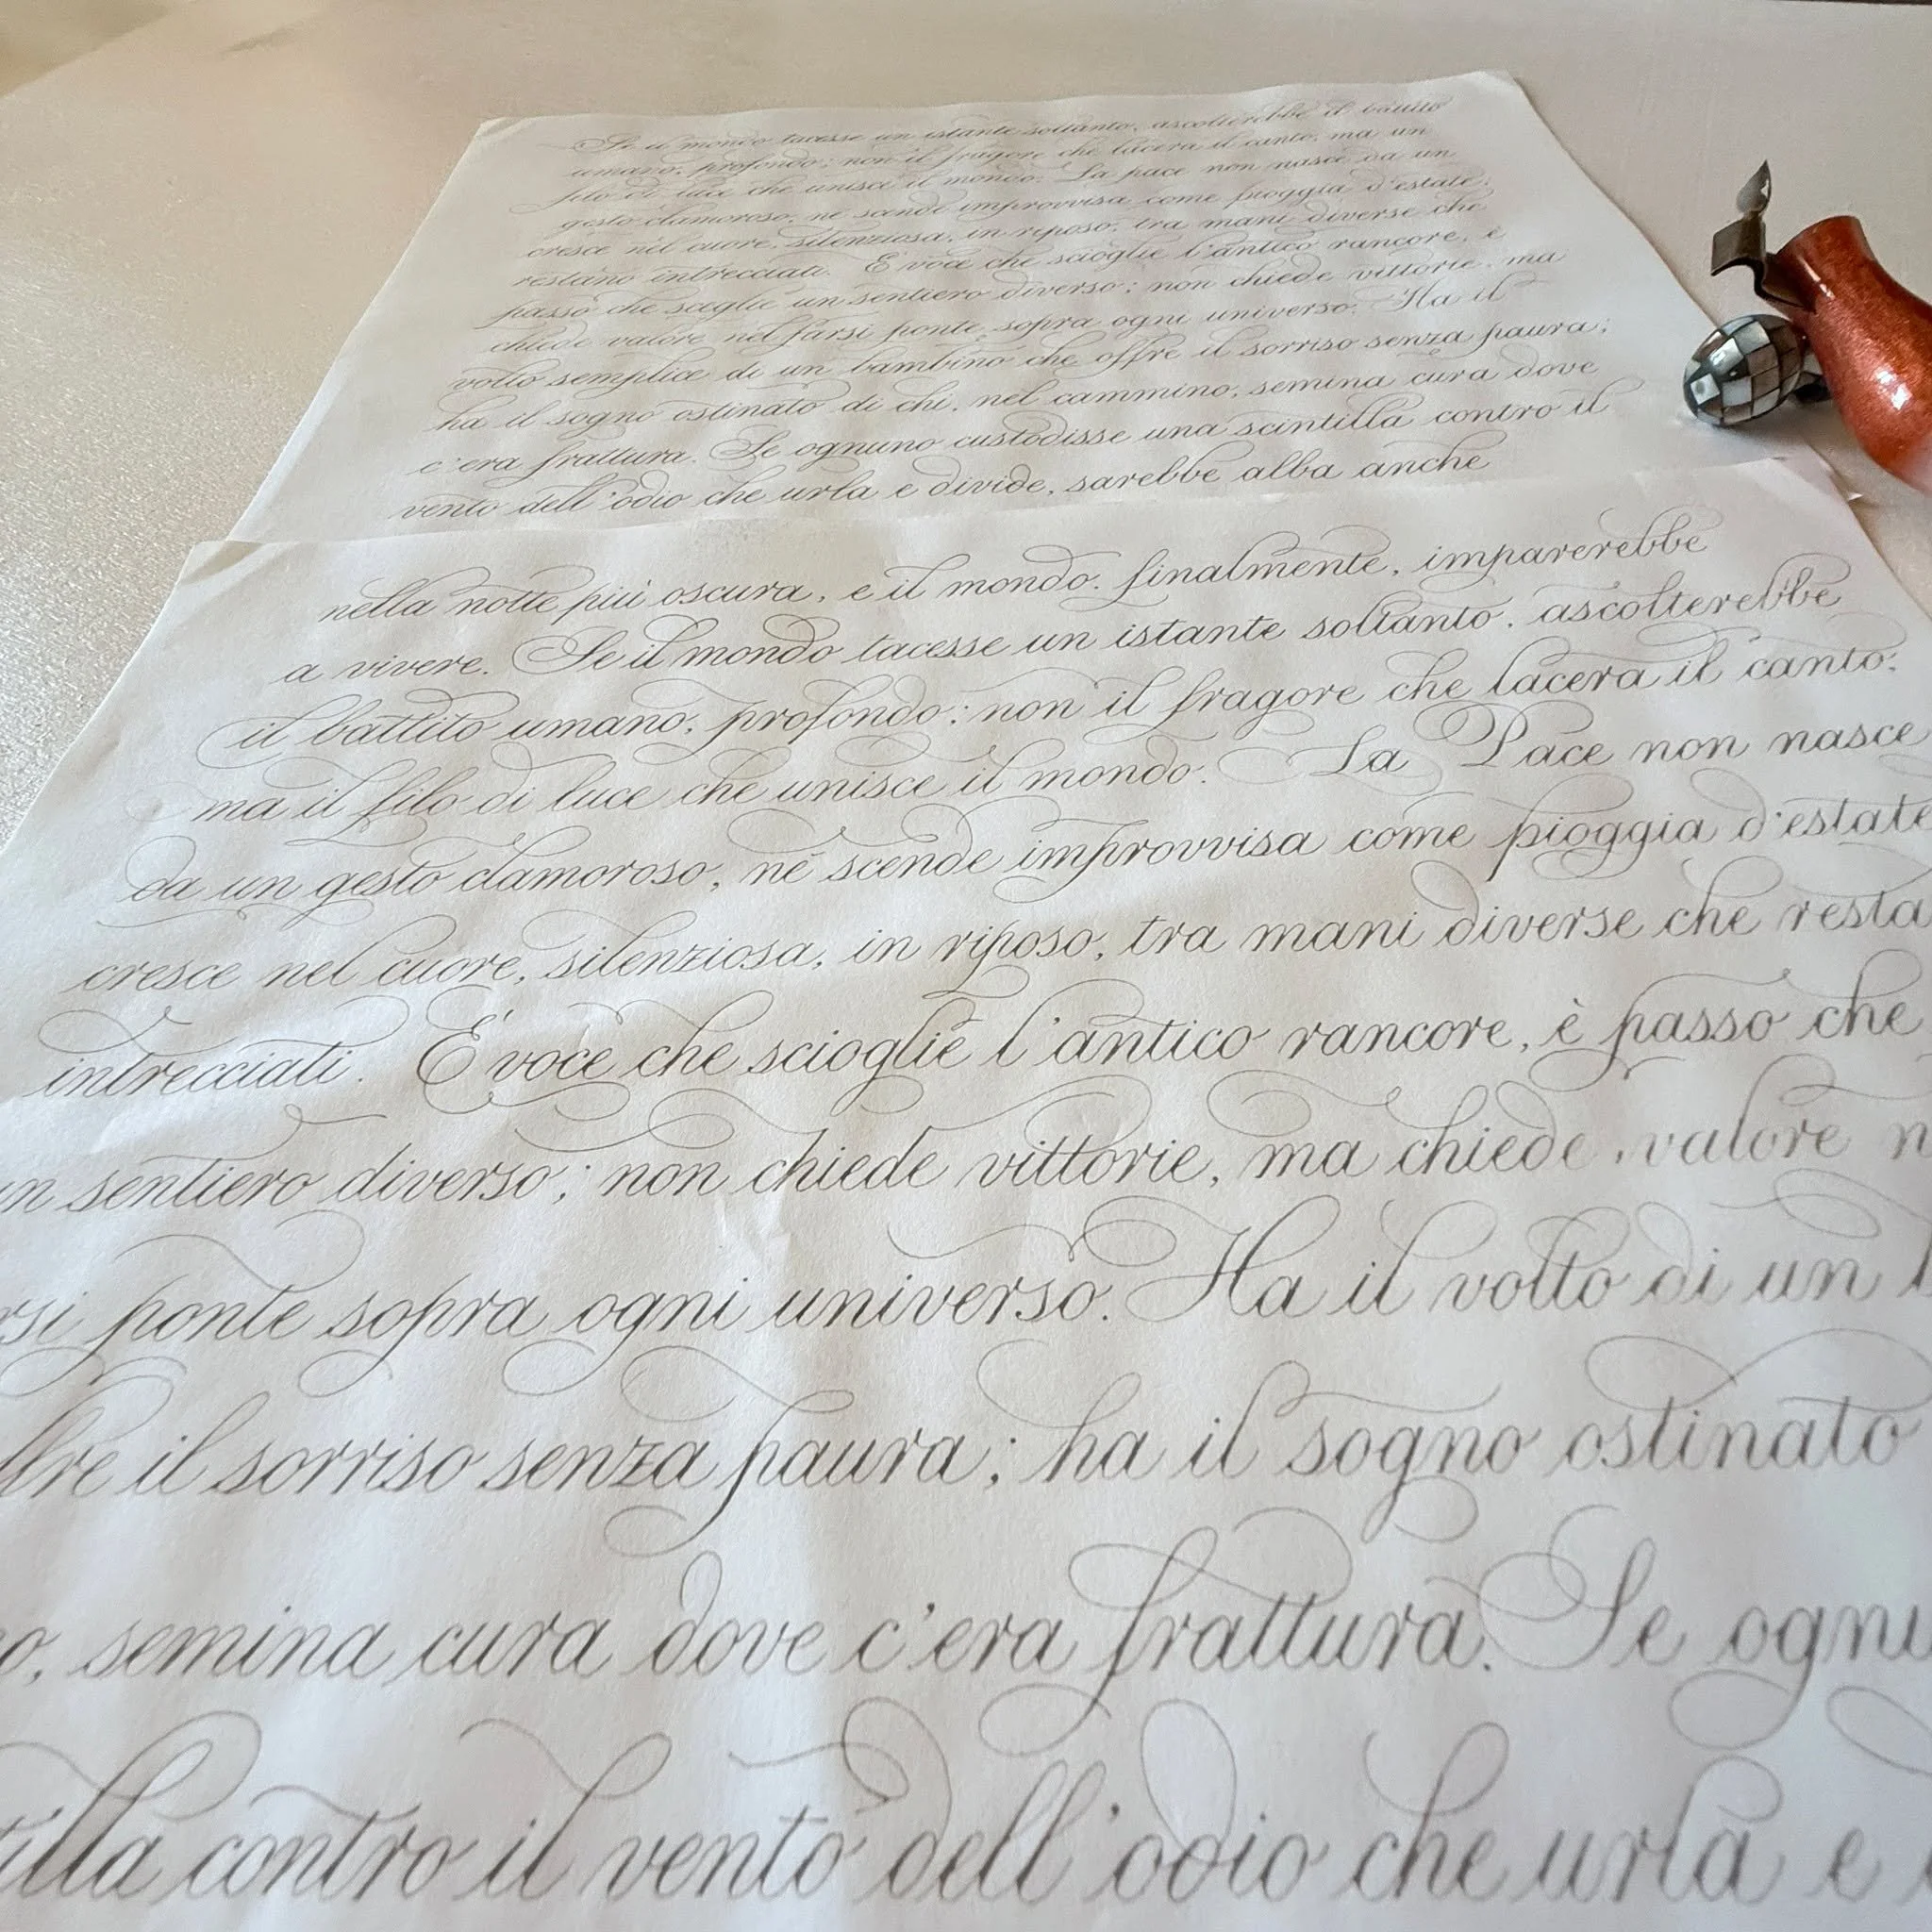 Se il mondo tacesse un istante soltanto, ascolterebbe il battito
umano, profondo; non il fragore che lacera il canto, ma un
filo di luce che unisce il mondo. La pace non nasce da un
gesto clamoroso, né scende improvvisa come pioggia d'estate;
cresce nel cuore, silenziosa, in riposo, tra mani diverse che
restano intrecciati. È voce che scioglie l'antico rancore, è
passo che sceglie un sentiero diverso; non chiede vittorie, ma
chiede valore nel farsi ponte sopra ogni universo. Ha il
volto semplice di un bambino che offre il sorriso senza paura;
ha il sogno ostinato di chi, nel cammino, semina cura dove
c'era frattura. Se ognuno custodisse una scintilla contro il
vento dell'odio che urla e divide, sarebbe alba anche
nella notte più oscura, e il mondo, finalmente, imparerebbe
a vivere. Se il mondo tacesse un istante soltanto, ascolterebbe
il battito umano, profondo; non il fragore che lacera il canto,
ma il filo di luce che unisce il mondo. La Pace non nasce
da un gesto clamoroso, né scende improvvisa come pioggia d'estate
cresce nel cuore, silenziosa, in riposo, tra mani diverse che resta
intrecciati. È voce che scioglie l'antico rancore, è passo che
un sentiero diverso; non chiede vittorie, ma chiede valore
ponte sopra ogni universo. Ha il volto di un
il sorriso senza paura; ha il sogno ostinato
semina cura dove c'era frattura. Se
contro il vento dell'odio che urla e